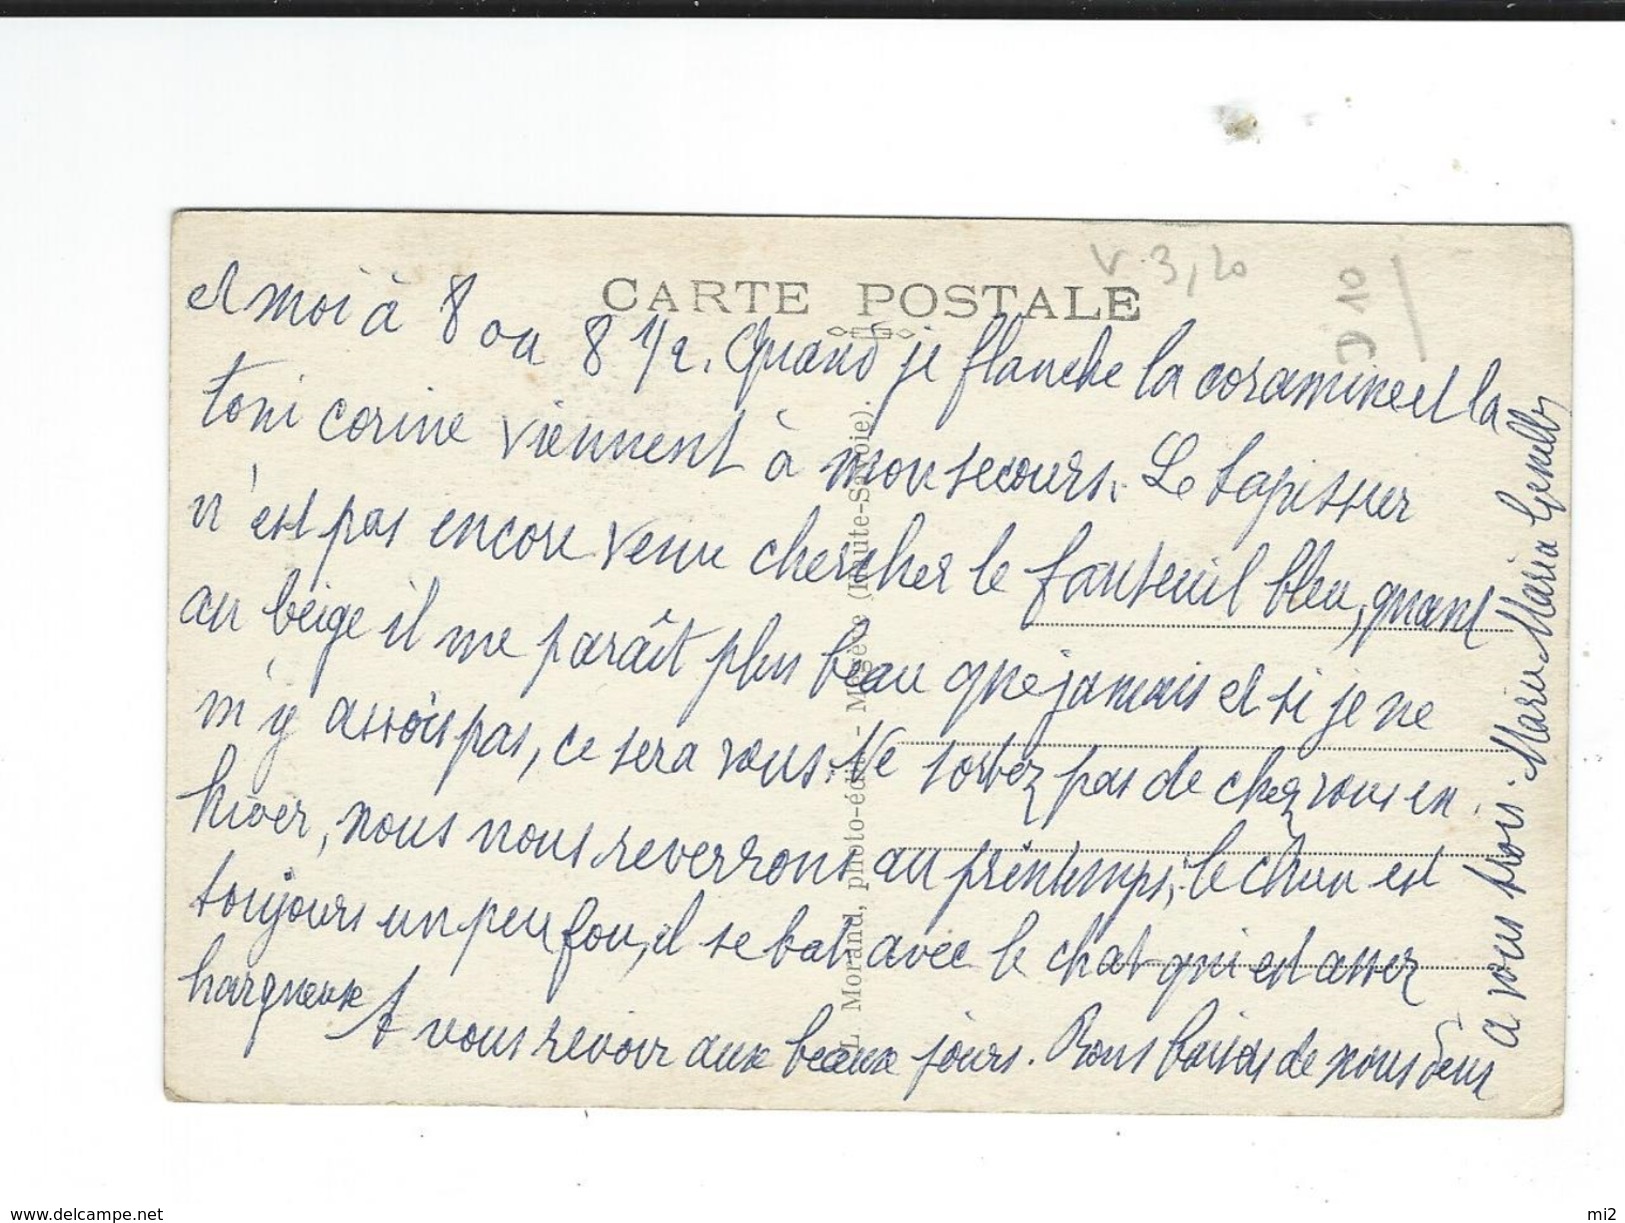 CARTE POSTALE
V. 3,20
D 10
et moi à 8 ou 8 1/2. Quand je flanche la coramine et la
toni corine viennent à mon secours. Le tapissier
n'est pas encore venu chercher le fauteuil bleu, quant
au beige il me paraît plus beau que jamais et si je ne
m'y assois pas, ce sera vous. Ne sortez pas de chez vous en
hiver, nous nous reverrons au printemps, le chien est
toujours un peu fou, il se bat avec le chat qui est assez
hargneux A vous revoir aux beaux jours. Bons baisers de nous deux
a vous trois. Marie Maria
L. Morand, photo-édit. - Megève (Haute-Savoie).
www.delcampe.net
mi2